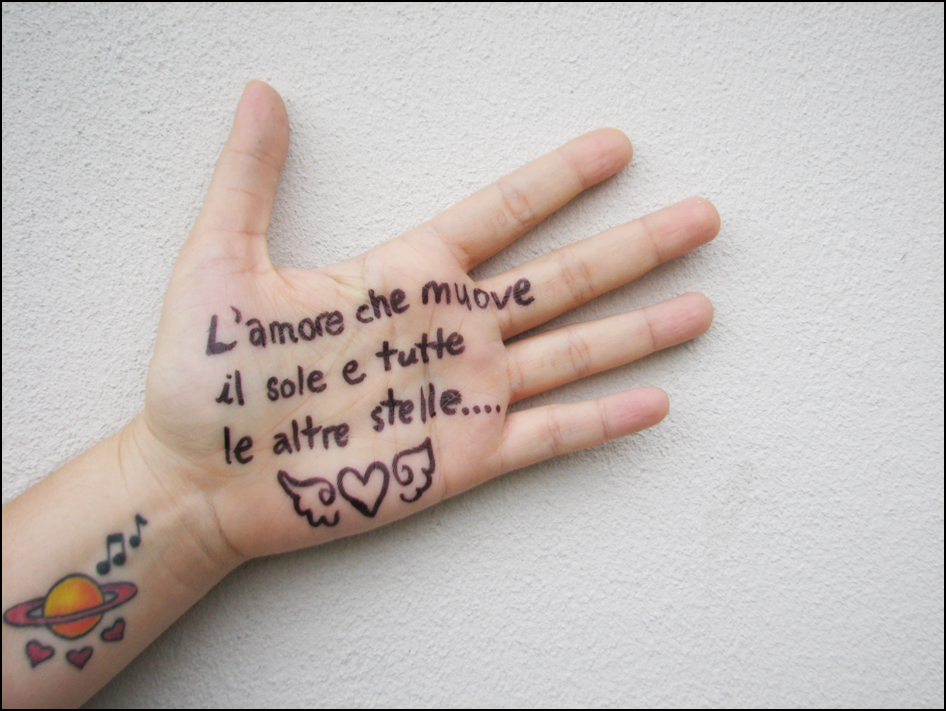 L'amore che muove
il sole e tutte
le altre stelle....